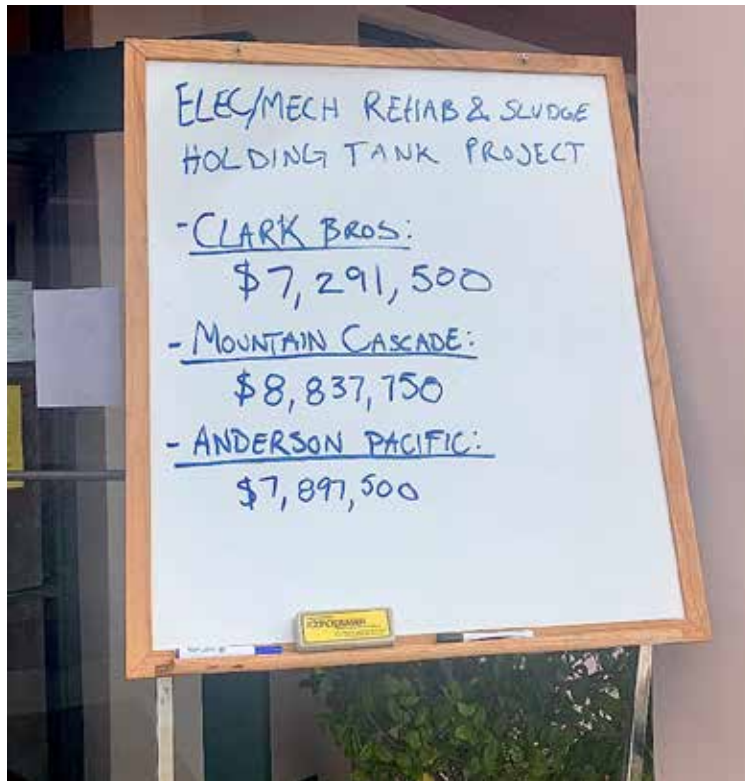 ELEC/MECH REHAB & SLUDGE
HOLDING TANK PROJECT
- CLARK BROS:
$7,291,500
- MOUNTAIN CASCADE:
$8,837,750
- ANDERSON PACIFIC:
$7,897,500